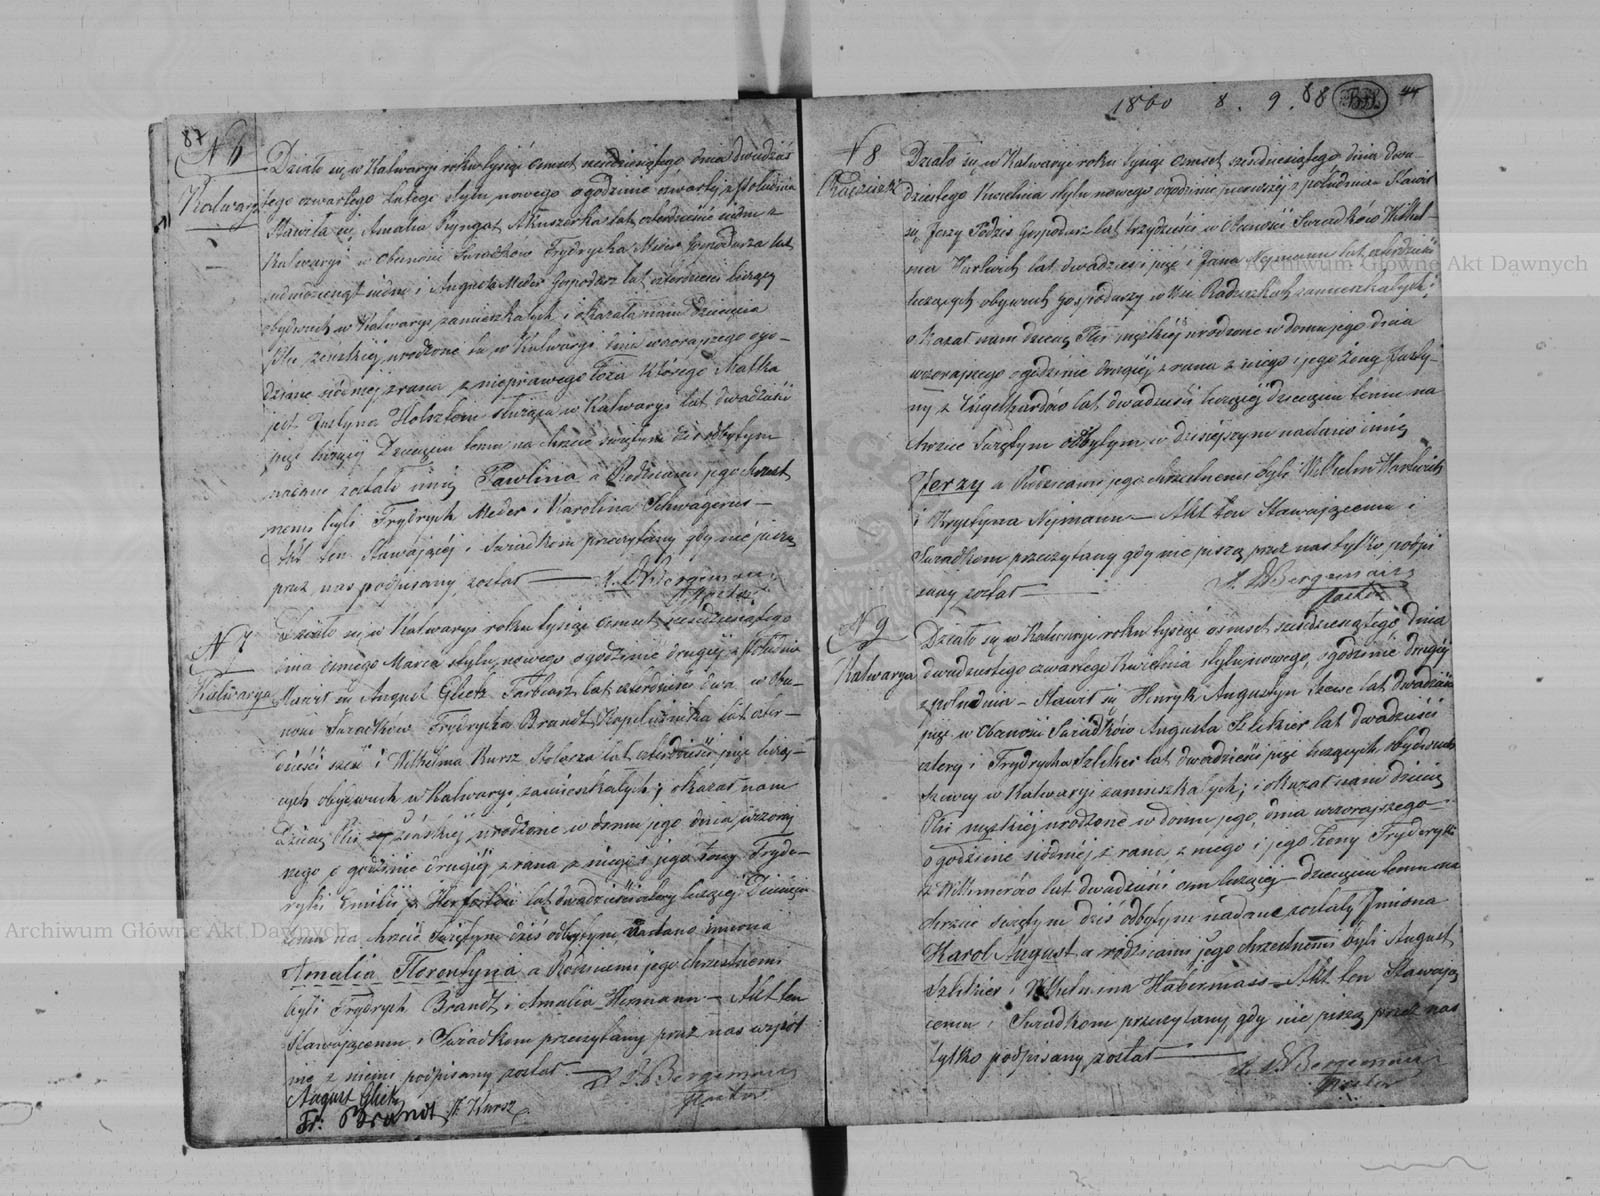 87
N 6
Kalwarya
Działo się w Kalwaryi roku tysiąc osmset sześdziesiątego dnia dwudzies
tego czwartego Lutego stylu nowego o godzinie czwartej z południa
Stawiła się Amalia Ryngat Akuszerka lat czterdzieście siedm z
Kalwaryi w obecności Swiadków Frydrycha Meder Gospodarza lat
siedmdziesiąt siedm i Augusta Meder Gospodarz lat czterdzieści liczący
obydwuch w Kalwaryi zamieszkałych i okazała nam Dziecięcia
Płci żeńskiej, urodzone tu w Kalwaryi dnia wczorajszego ogo-
dzinie siódmej zrana z nieprawego Łoża którego Matka
jest Justyna Holsztein służąca w Kalwaryi lat dwadzieście
pięć licząca Dziecięciu temu na chrzcie świętym dziś odbytym
nadane zostało imię Pawlina a Rodzicami jego chrzest
nemi byli Frydrych Meder i Karolina Schwagerus —
Akt ten Stawającéj i Swiadkom przeczytany gdy nie piszą
przez nas podpisany został — Bergemann
Pastor
N 7
Kalwarya
Działo się w Kalwaryi roku tysiąc osmset sześdziesiątego
dnia ósmego Marca stylu nowego o godzinie drugiej z południa
Stawił się August Glietz Farbiarz lat czterdzieści dwa w obec-
ności Swiadków Frydrycha Brandt Kapelusznika lat czter-
dzieści sześć i Wilhelma Kursz Stolarza lat czterdzieści pięć liczą-
cych obydwuch w Kalwaryi zamieszkałych; i okazał nam
Dziecię Płci żeńskiej urodzone w domu jego dnia
o godzinie drugiej z rana z niego i jego żony Fryde-
ryki Emilii z lat dwadzieście cztery liczącej Dziecięciu
temu na chrzcie Swiętym dziś odbytym nadano imiona
Amalia Florentyna a Rodzicami jego chrzestnemi
byli Frydrych Brandt i Amalia Hermann — Akt ten
Stawającemu i Swiadkom przeczytany przez nas wspól
nie z niemi podpisany został — Bergemann
Pastor
August Glietz
Fr: Brandt W Kursz
1860 8. 9. 88 44
N 8
Działo się w Kalwaryi roku tysiąc osmset sześdziesiątego dnia dwu-
dziestego Kwietnia stylu nowego o godzinie pierwszej z południa Stawił
się Jerzy Podzis Gospodarz lat trzydzieści w Obecności Swiadków Wilhel-
ma Hartwich lat dwadzieści pięć i Jana Nejmann lat czterdzieści
liczących obydwuch gospodarzy w wsi Radziszkach zamieszkałych i
okazał nam dziecię Płci męzkiej urodzone w domu jego dnia
wczorajszego o godzinie drugiej z rana z niego i jego żony Justy-
ny z Engelhardów lat dwadzieścia liczącej dziecięciu temu na
chrzcie Swiętym odbytym w dzisiejszym nadano imię
Jerzy a Rodzicami jego chrzestnemi byli Wilhelm Hartwich
i Krystyna Nejmann — Akt ten Stawającemu i
Swiadkom przeczytany gdy nie piszą przez nas tylko podpi
sany został — Bergemann
Pastor
N 9
Kalwarya
Działo się w Kalwaryi roku tysiąc osmset sześdziesiątego dnia
dwudziestego czwartego Kwietnia stylu nowego, o godzinie drugiej
z południa — Stawił się Henryk Augustyn Szewc lat dwadzieścia
pięć w Obecności Swiadków Augusta Szlekier lat dwadzieści
cztery i Frydrycha Szlekier lat dwadzieści pięć liczących obydwuch
Szewcy w Kalwaryi zamieszkałych; i okazał nam dziecię
Płci męzkiej urodzone w domu jego, dnia wczorajszego
o godzinie siódmej z rana z niego i jego żony Fryderyki
z Wittmerów lat dwadzieści osm liczącej dziecięciu temu na
chrzcie świętym dziś odbytym nadane zostały Imiona
Karol August a rodzicami jego chrzestnemi byli August
Szlekier i Wilhelmina Habermass — Akt ten Stawają
cemu i Swiadkom przeczytany gdy nie piszą przez nas
tylko podpisany został — Bergemann
Pastor
Archiwum Główne Akt Dawnych
Archiwum Główne Akt Dawnych